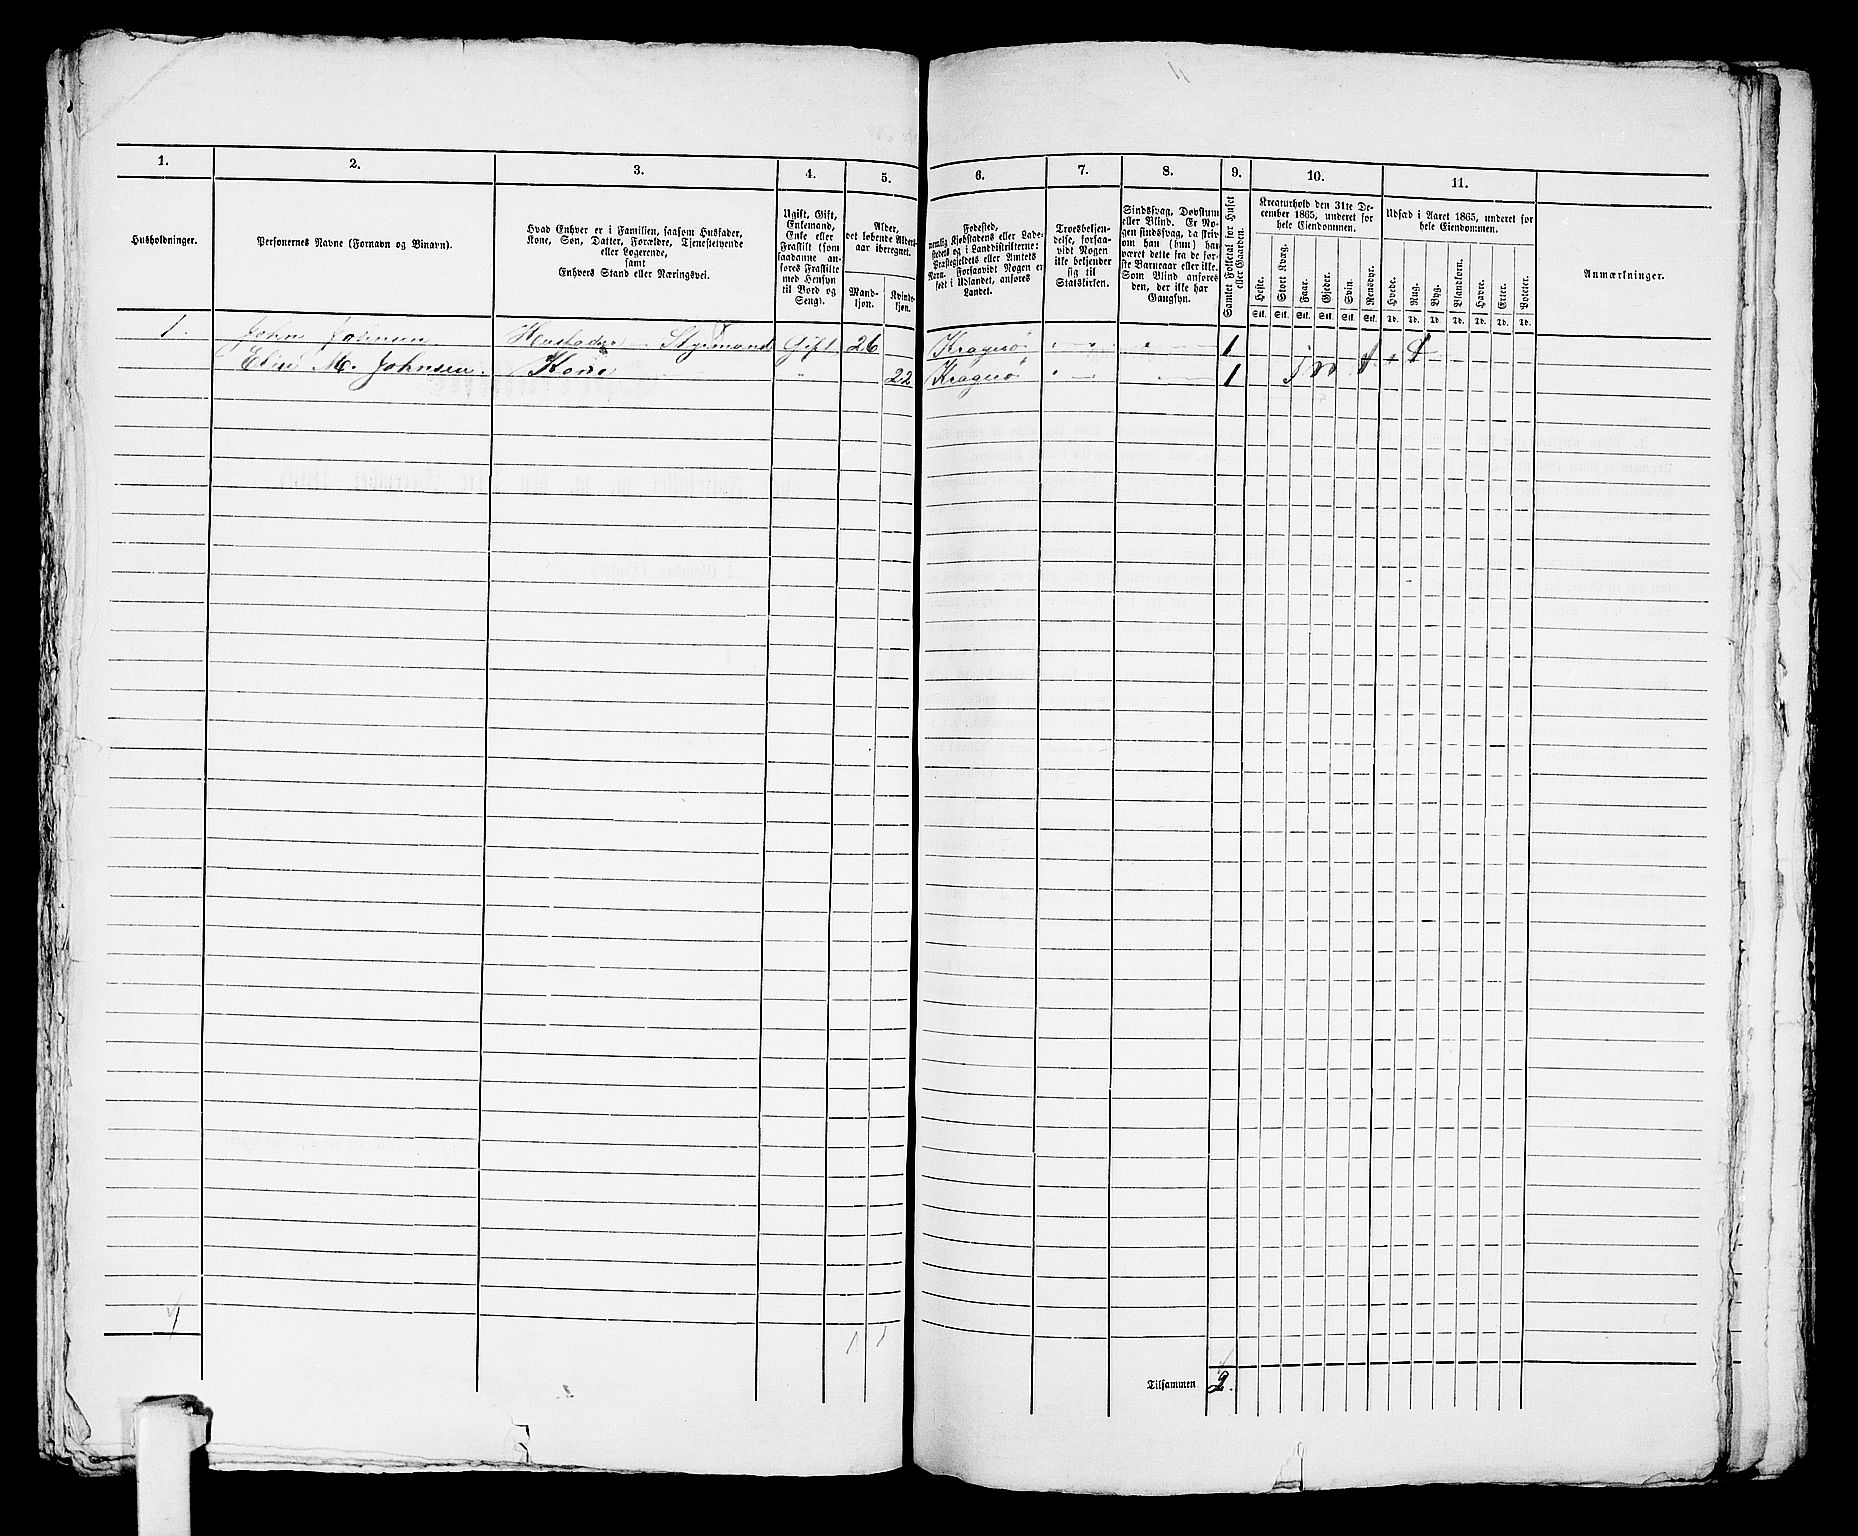 1. 2. 3. 4. 5. 6. 7. 8. 9. 10. 11.
Husholdninger.
Personernes Navne (Fornavn og Binavn).
Hvad Enhver er i Familien, saasom Husfader,
Kone, Søn, Datter, Forældre, Tjenestetyende
eller Logerende,
samt
Enhvers Stand eller Næringsvei.
Ugift, Gift,
Enkemand,
Enke eller
Fraskilt (som
saadanne an-
føres Fraskilte
med Hensyn
til Bord og
Seng).
Alder,
det løbende Alders-
aar iberegnet.
Mand-
kjøn.
Kvinde-
kjøn.
Fødested,
nemlig Kjøbstadens eller Lade-
stedets og i Landdistrikterne:
Præstegjeldets eller Amtets
Navn. Forsaavidt Nogen er
født i Udlandet, anføres
Landet.
Troesbekjen-
delse, forsaa-
vidt Nogen
ikke bekjender
sig til
Statskirken.
Sindssvag, Døvstum
eller Blind. Er No-
gen sindssvag, da hvor-
om han (hun) har
været dette fra de før-
ste Barneaar eller ikke.
Som Blind anføres
den, der ikke har
Gangsyn.
Samlet Folketal for Huset
eller Gaarden.
Kreaturhold den 31te De-
cember 1865, underet for
hele Eiendommen.
Heste.
Stort Kvæg.
Faar.
Gjeder.
Svin.
Rensdyr.
Stk. Stk. Stk. Stk. Stk. Stk.
Udsæd i Aaret 1865, underet for
hele Eiendommen.
Hvede.
Rug.
Byg.
Blandkorn.
Havre.
Erter.
Poteter.
Td. Td. Td. Td. Td. Td. Td.
Anmærkninger.
1. John Johnsen Husfader Styrmand Gift 26 Kragerø 1
M. Johnsen. Kone " 22 Kragerø 1
1 1
Tilsammen 2.